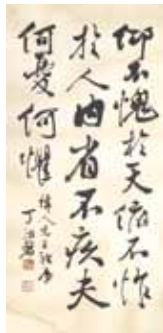 仰不愧於天俯不怍
於人内省不疚夫
何憂何懼